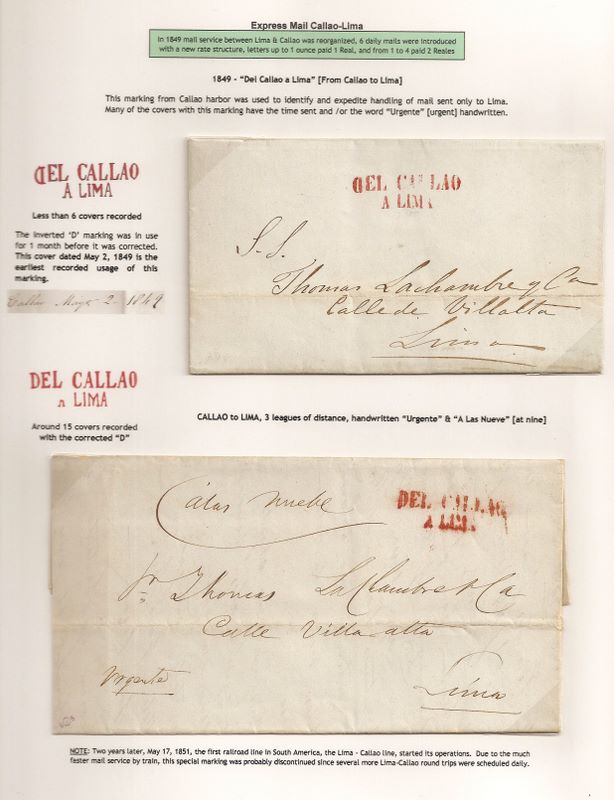 Express Mail Callao-Lima
In 1849 mail service between Lima & Callao was reorganized, 6 daily mails were introduced
with a new rate structure, letters up to 1 ounce paid 1 Real, and from 1 to 4 paid 2 Reales
1849 - "Del Callao a Lima" [From Callao to Lima]
This marking from Callao harbor was used to identify and expedite handling of mail sent only to Lima.
Many of the covers with this marking have the time sent and /or the word "Urgente" [urgent] handwritten.
DEL CALLAO
A LIMA
Less than 6 covers recorded
The inverted 'D' marking was in use
for 1 month before it was corrected.
This cover dated May 2, 1849 is the
earliest recorded usage of this
marking.
Callao Mayo 2 - 1849
DEL CALLAO
A LIMA
S. S.
Thomas Lachambre y Ca
Calle de Villalta
Lima
DEL CALLAO
A LIMA
Around 15 covers recorded
with the corrected "D"
CALLAO to LIMA, 3 leagues of distance, handwritten "Urgente" & "A Las Nueve" [at nine]
A las nuebe
DEL CALLAO
A LIMA
Sr Thomas LaChambre & Ca
Calle Villa alta
Urgente
Lima
NOTE: Two years later, May 17, 1851, the first railroad line in South America, the Lima - Callao line, started its operations. Due to the much
faster mail service by train, this special marking was probably discontinued since several more Lima-Callao round trips were scheduled daily.